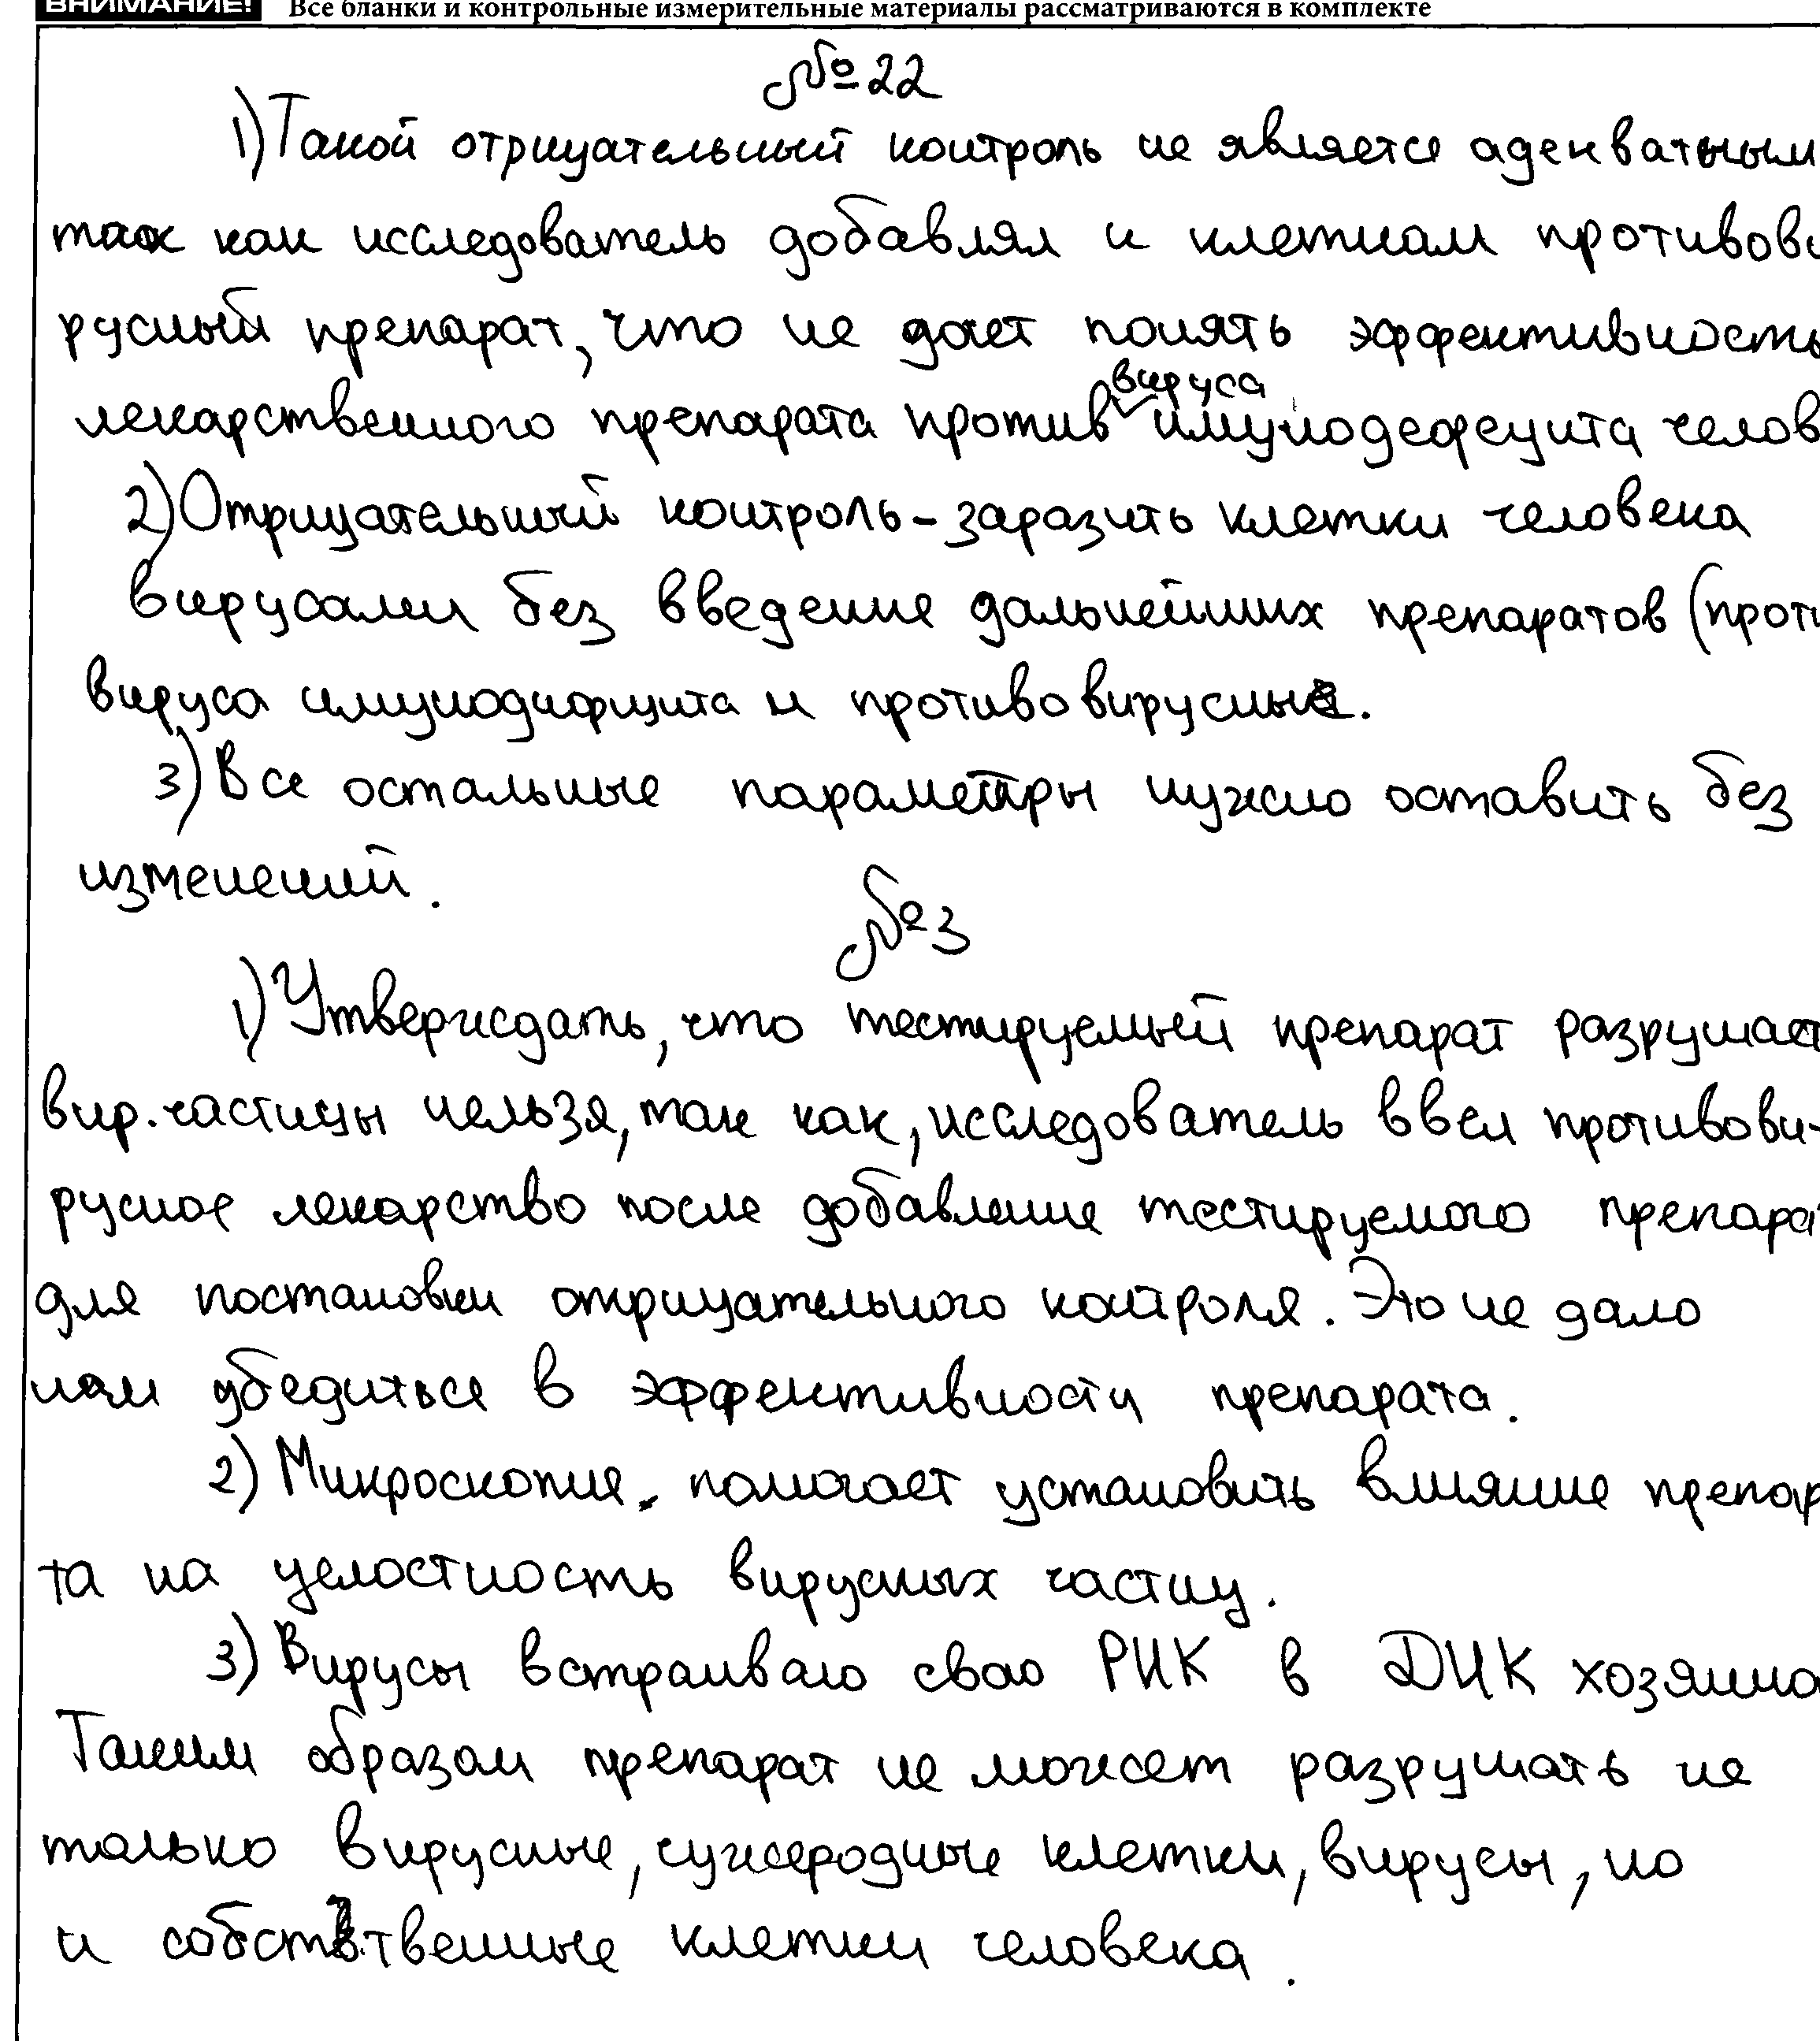 ВНИМАНИЕ! Все бланки и контрольные измерительные материалы рассматриваются в комплекте
№22
1) Такой отрицательный контроль не является адекватным
так как исследователь добавлял к клеткам противови
русный препарат, что не дает понять эффективность
лекарственного препарата против вируса имунодефецита челов
2) Отрицательный контроль - заразить клетки человека
вирусами без введение дальнейших препаратов (проти
вируса имунодифицита и противовирусные.
3) Все остальные параметры нужно оставить без
изменений.
№3
1) Утверждать, что тестируемый препарат разрушает
вир. частицы нельзя, так как, исследователь ввел противови-
русное лекарство после добавление тестируемого препарат
для постановки отрицательного контроля. Это не дало
нам убедиться в эффективности препарата.
2) Микроскопия помогает установить влияние препар
та на целостность вирусных частиц.
3) Вирусы встраиваю свою РНК в ДНК хозяина
Таким образом препарат не может разрушать не
только вирусные, чужеродные клетки, вирусы, но
и собственные клетки человека.